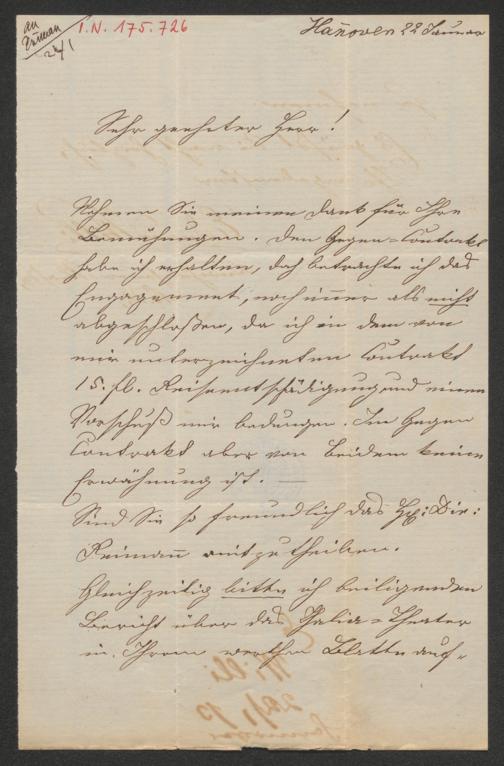 an
Reiman
24/1
I.N. 175.726
Hannover 22 Januar
Sehr geehrter Herr!
Nehmen Sie meinen Dank für Ihre
Bemühungen. Den Gegen=Contrakt
habe ich erhalten, doch betrachte ich das
Engagement, noch im̅er als nicht
abgeschloßen, da ich in dem von
mir unterzeichneten Contrakt
15. fl. Reiseentschädigung und einen
Vorschuß mir bedungen. Im Gegen
Contrakt aber von beidem keine
Erwähnung ist. —
Sind Sie so freundlich das H: Dir:
Reiman̅ mitzutheilen.
Gleichzeitig bitte ich beiligenden
Bericht über das Thalia=Theater
in Ihrem werthen Blatte auf=